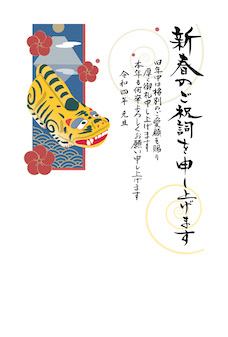 新春のご祝詞を申し上げます
旧年中は格別のご愛顧を賜り
厚く御礼申し上げます
本年も何卒よろしくお願い申し上げます
令和四年 元旦